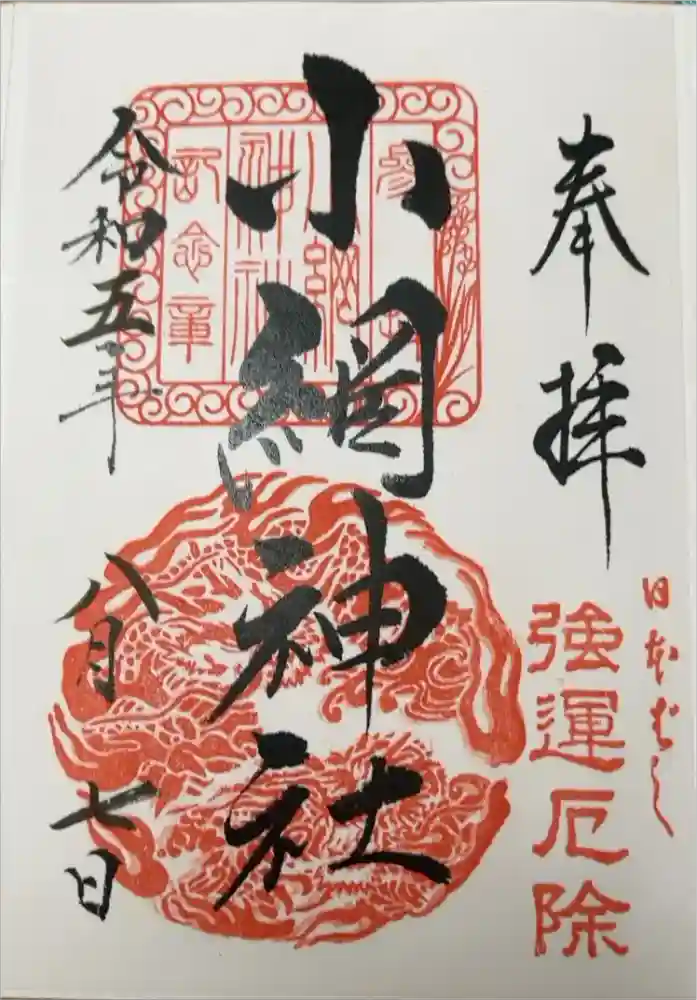 奉拝
日本ばし
強運厄除
参拝
小網神社
記念章
小網神社
令和五年
八月
七日